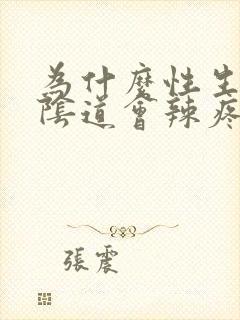 為什麼性生
陰道會辣疼
張震